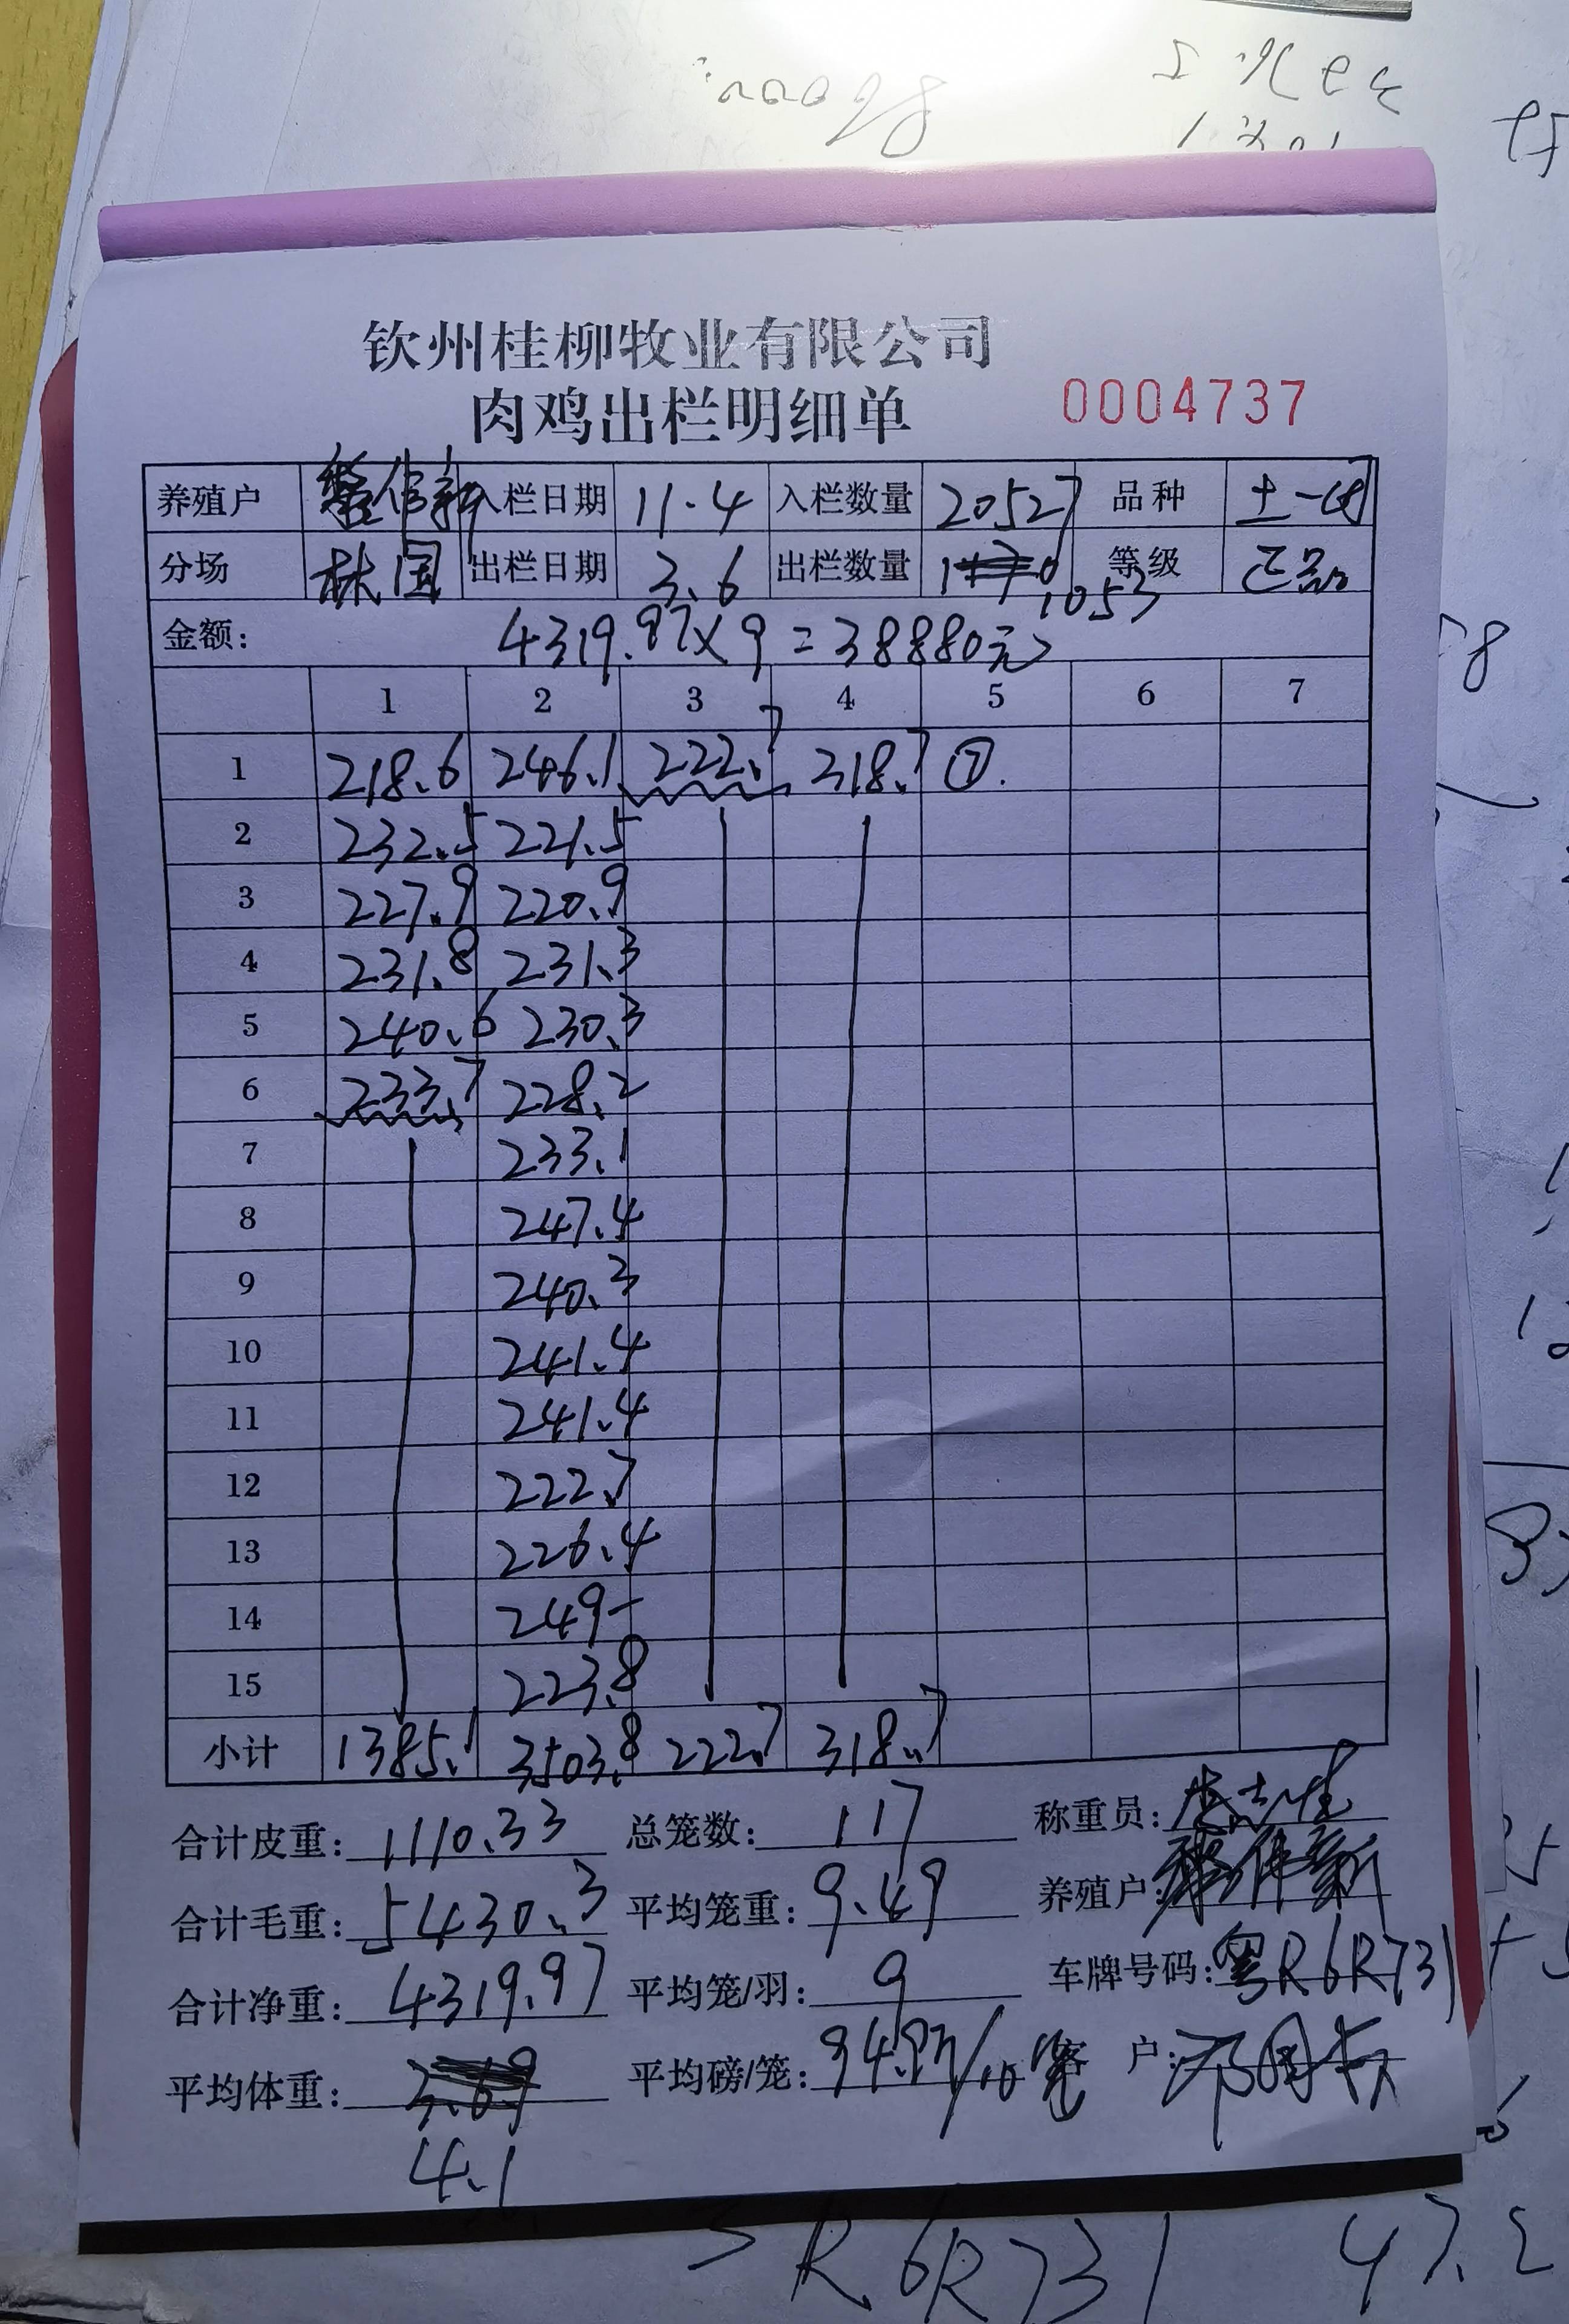 钦州桂柳牧业有限公司
肉鸡出栏明细单 0004737
养殖户 入栏日期 11.4 入栏数量 20527 品种 土一
分场 林国 出栏日期 3.6 出栏数量 1053 等级 正品
金额: 4319.97×9=38880元
1 2 3 4 5 6 7
1 218.6 246.1 222.7 318.7 ⑦.
2 232.5 221.5
3 227.9 220.9
4 231.8 231.3
5 240.6 230.3
6 233.7 228.2
7 233.1
8 247.4
9 240.3
10 241.4
11 241.4
12 222.7
13 226.4
14 249-
15 223.8
小计 1385.1 3503.8 222.7 318.7
合计皮重: 1110.33 总笼数: 117 称重员:
合计毛重: 5430.3 平均笼重: 9.49 养殖户:
合计净重: 4319.97 平均笼/羽: 9 车牌号码: 粤R6R731
平均体重: 平均磅/笼: 客 户:
4.1
R6R731 47.2